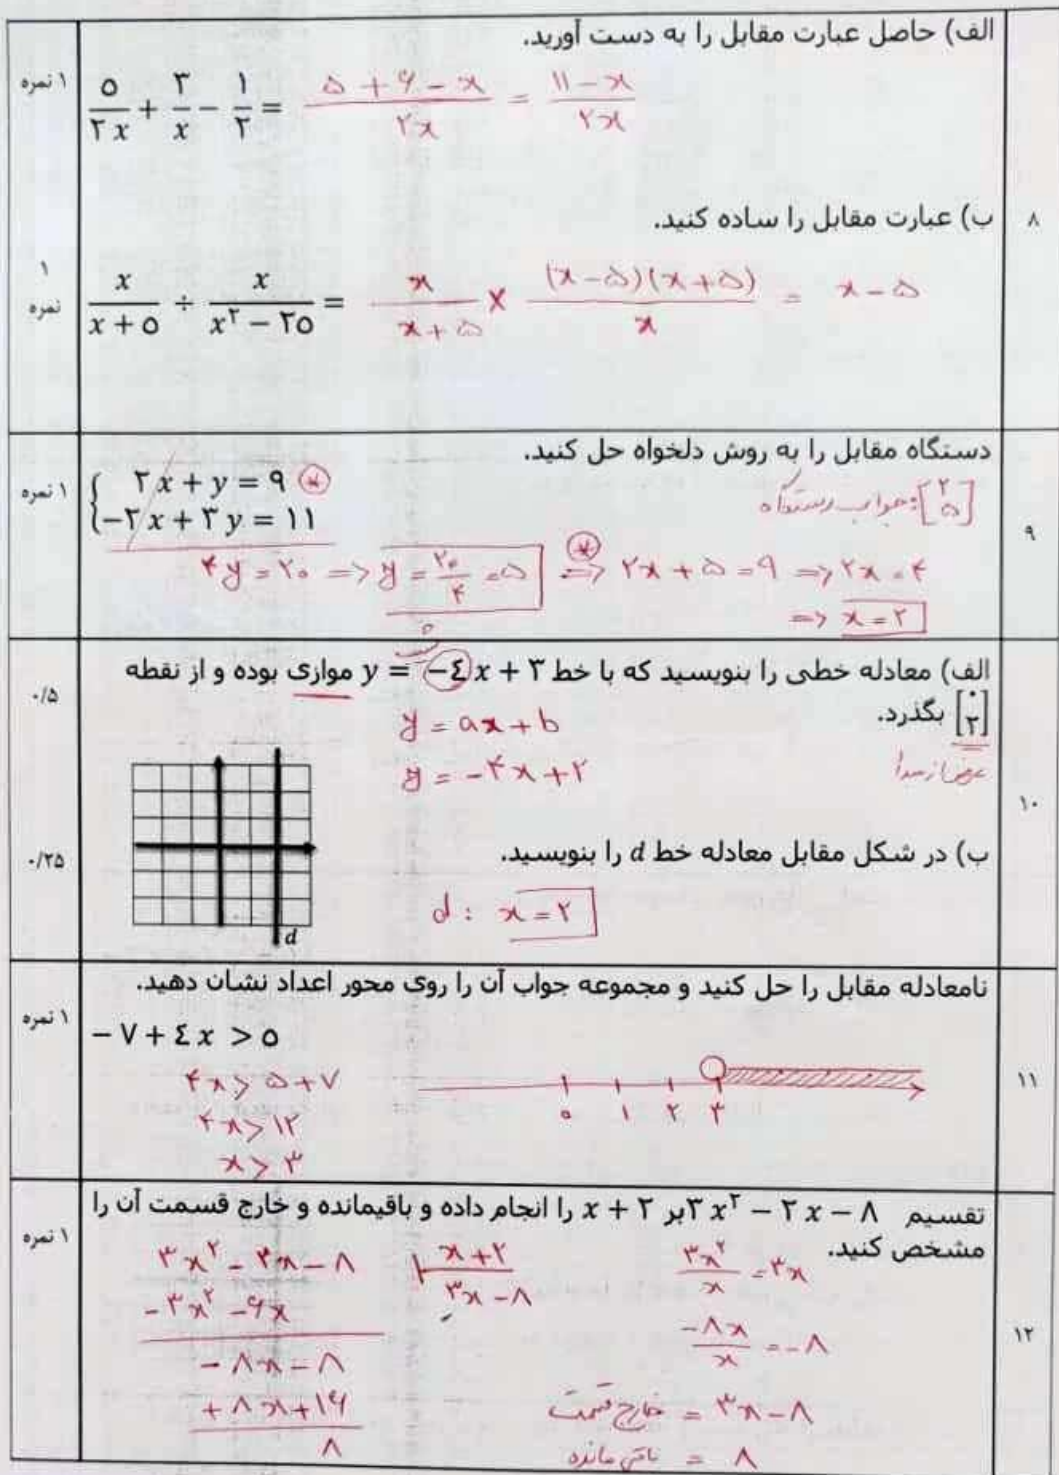 الف) حاصل عبارت مقابل را به دست آورید.
۱ نمره
۵/۲x + ۳/x − ۱/۲ = (۵ + ۶ − x)/۲x = (۱۱ − x)/۲x
۸
ب) عبارت مقابل را ساده کنید.
۱ نمره
x/(x + ۵) ÷ x/(x² − ۲۵) = x/(x + ۵) × (x − ۵)(x + ۵)/x = x − ۵
دستگاه مقابل را به روش دلخواه حل کنید.
۱ نمره
۹
۲x + y = ۹ *
−۲x + ۳y = ۱۱
جواب دستگاه: [۲ ۵]
۴y = ۲۰ => y = ۲۰/۴ = ۵ * => ۲x + ۵ = ۹ => ۲x = ۴
=> x = ۲
الف) معادله خطی را بنویسید که با خط y = −٤x + ۳ موازی بوده و از نقطه
۰/۵
[۰ ۲] بگذرد.
y = ax + b
عرض از مبدا
y = −۴x + ۲
۱۰
ب) در شکل مقابل معادله خط d را بنویسید.
۰/۲۵
d : x = ۲
d
نامعادله مقابل را حل کنید و مجموعه جواب آن را روی محور اعداد نشان دهید.
۱ نمره
− ۷ + ٤x > ۵
۱۱
۴x > ۵ + ۷
۴x > ۱۲
x > ۳
۰ ۱ ۲ ۳
تقسیم ۳x² − ۲x − ۸ بر x + ۲ را انجام داده و باقیمانده و خارج قسمت آن را
۱ نمره
مشخص کنید.
۳x² − ۲x − ۸ | x + ۲
۳x − ۸
۳x²/x = ۳x
− ۳x² − ۶x
−۸x/x = −۸
− ۸x − ۸
۱۲
+ ۸x + ۱۶
خارج قسمت = ۳x − ۸
۸
باقی مانده = ۸